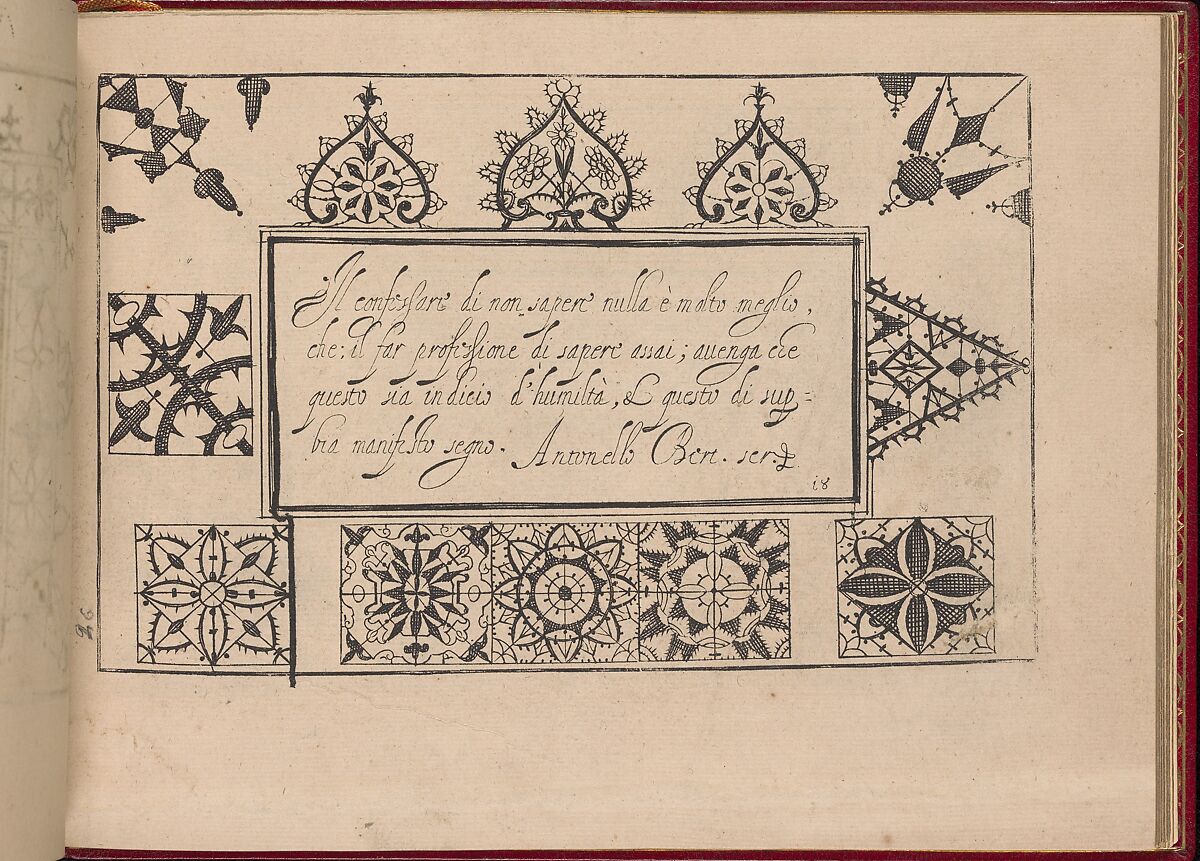 Il confessare di non sapere nulla è molto meglio,
che, il far professione di sapere assai; auenga che
questo sia indicio d'humiltà, & questo di sup=
bia manifesto segno. Antonello Bert. ser.
18
26